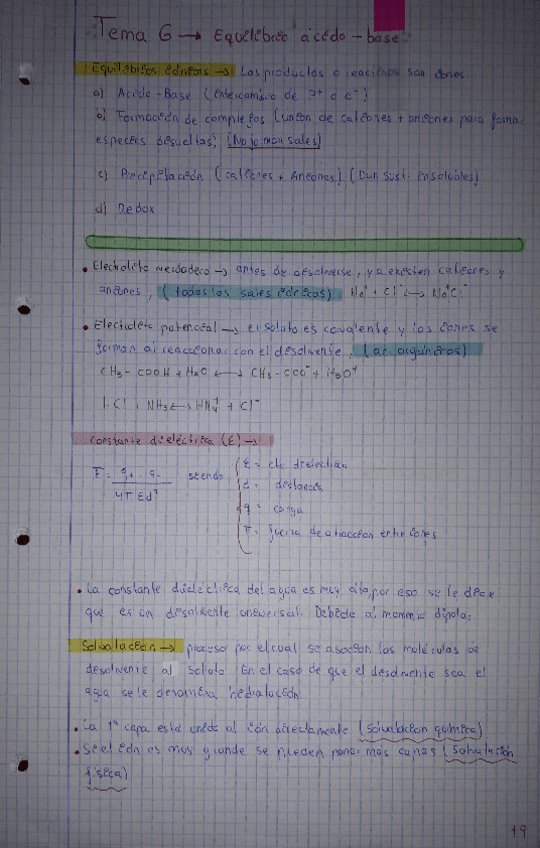 Tema 6 → Equilibrio ácido-base
Equilibrios iónicos → Los productos o reactivos son iones
a) Ácido-Base (intercambio de P+ o e-)
b) Formación de complejos (unión de cationes + aniones para formar
especies disueltas) (No forman sales)
c) Precipitación (cationes + Aniones) (Dan sust. insolubles)
d) Redox
• Electrolito verdadero → antes de disolverse, ya existen cationes y
aniones, (todas las sales iónicas) Na+ + Cl- ↔ Na+Cl-
• Electrolito potencial → el soluto es covalente y los iones se
forman al reaccionar con el disolvente,
CH3-COOH + H2O ↔ CH3-COO- + H3O+
HCl + NH3 ↔ + Cl-
Constante dieléctrica (ε) →
ε = cte dieléctrica
F = q+ . q- siendo d = distancia
4π εd² q = carga
F = fuerza de atracción entre iones
• La constante dieléctrica del agua es muy alta por eso se le dice
que es un disolvente universal. Debido al momento dipolar
Solvatación → proceso por el cual se asocian las moléculas de
disolvente al soluto. En el caso de que el disolvente sea el
agua se le denomina hidratación
• La 1ª capa está unida al ión directamente (solvatación química)
• Si el ión es muy grande se pueden poner más capas (solvatación
física)
19